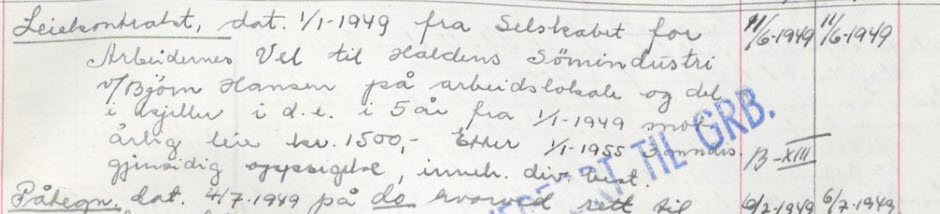 Leiekontrakt, dat. 1/1-1949 fra Selskabet for 11/6-1949 11/6-1949
Arbeidernes Vel til Haldens Sömindustri
v/Bjørn Hansen på arbeidslokale og del
i kjeller i d.e. i 5 år fra 1/1-1949 mot
årlig leie kr. 1500,- Etter 1/1-1955 3 mndrs B-XIII
gjensidig oppsigelse, inneh. div. best.
Påtegn. dat. 4/7-1949 på do hvorved rett til 6/7-1949 6/7-1949
TIL GRB.